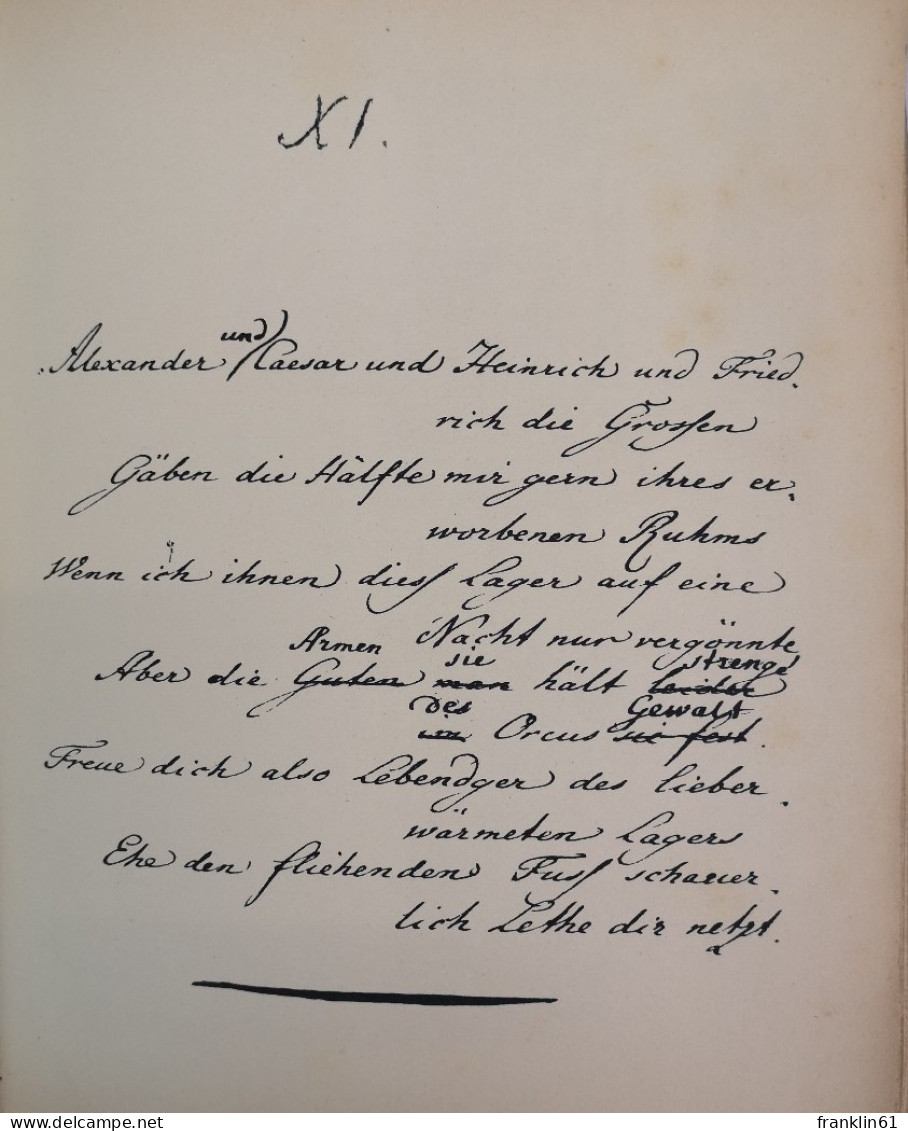 XI.
und
Alexander Caesar und Heinrich und Fried,
rich die Grossen
Gäben die Hälfte mir gern ihres er,
worbenen Ruhms
Wenn ich ihnen diess Lager auf eine
Nacht nur vergönnte
Armen sie strenge
Aber die Guten man hält leider
des Gewalt
im Orcus sie fest.
Freue dich also Lebendger des lieber,
wärmeten Lagers
Ehe den fliehenden Fuss schauer,
lich Lethe dir netzt.
franklin61